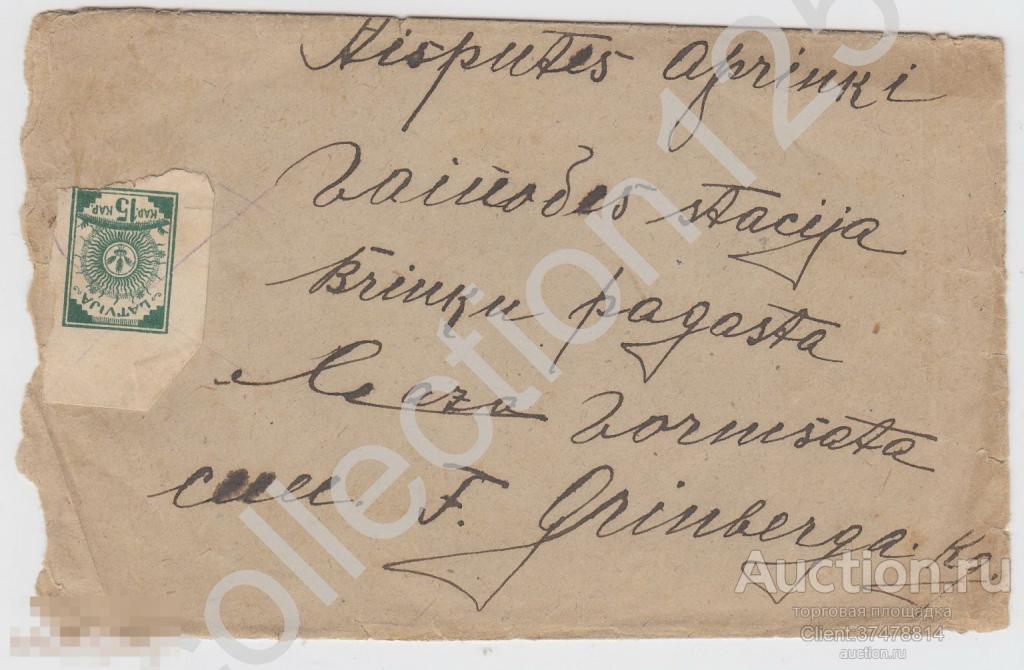 Aisputes aprinki
Vainodes stacija
Brinku pagasta
Maza Dormsata
F. Grinberga. Kg
15 KAP.
KAP.
LATVIJA
collection 125
Auction.ru
торговая площадка
Client:37478814
auction.ru